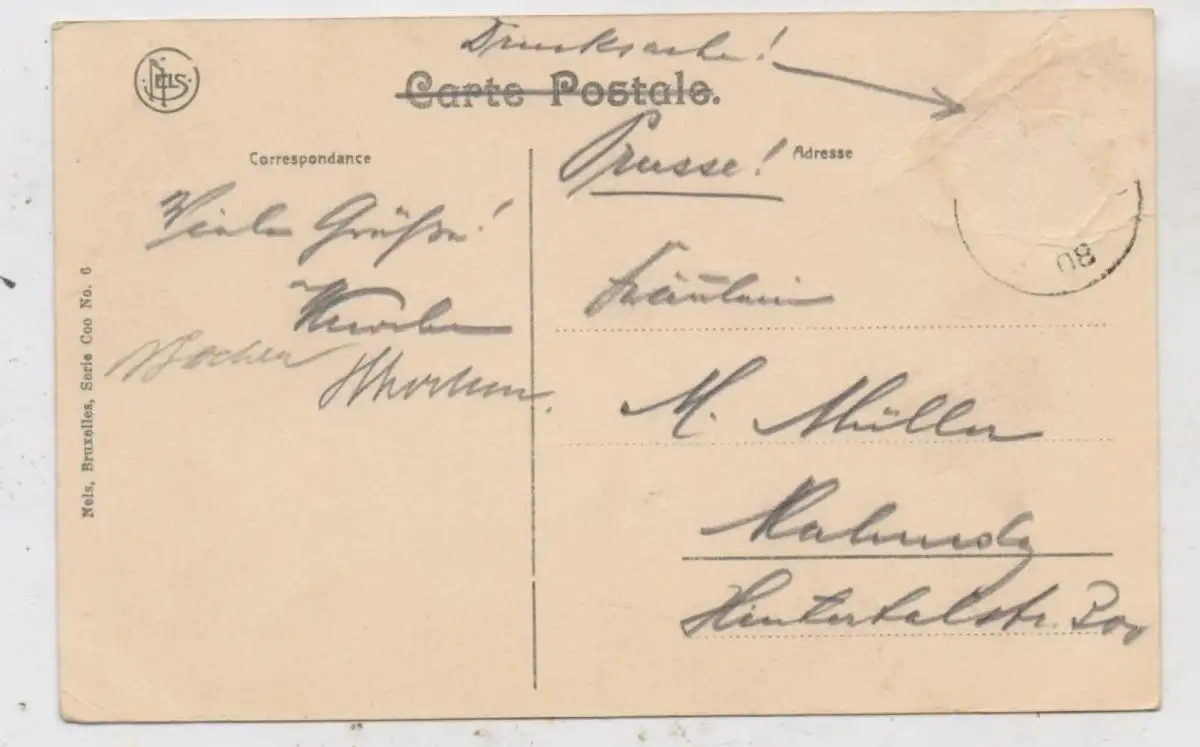 Drucksache!
NELS
Carte Postale.
Correspondance
Adresse
Prusse!
Viele Grüße!
Fräulein
M. Müller
Malmedy
Hintertalstr.
Nels, Bruxelles, Serie Coo No. 6